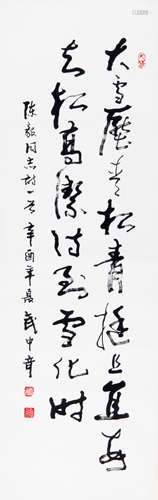 大雪壓青松青挺且直要
知松高潔待到雪化時
陳毅同志詩一首辛酉年夏武中奇